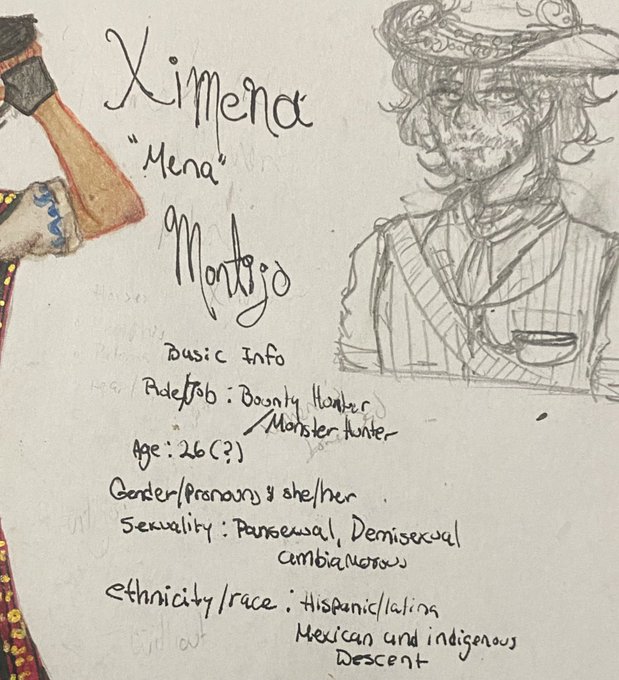 Ximena
"Mena"
Montijo
Basic Info
Role/Job : Bounty Hunter
/Monster Hunter
Age : 26 (?)
Gender/Pronouns : she/her
Sexuality : Pansexual, Demisexual
ambiamorous
ethnicity/race : Hispanic/latina
Mexican and indigenous
Descent